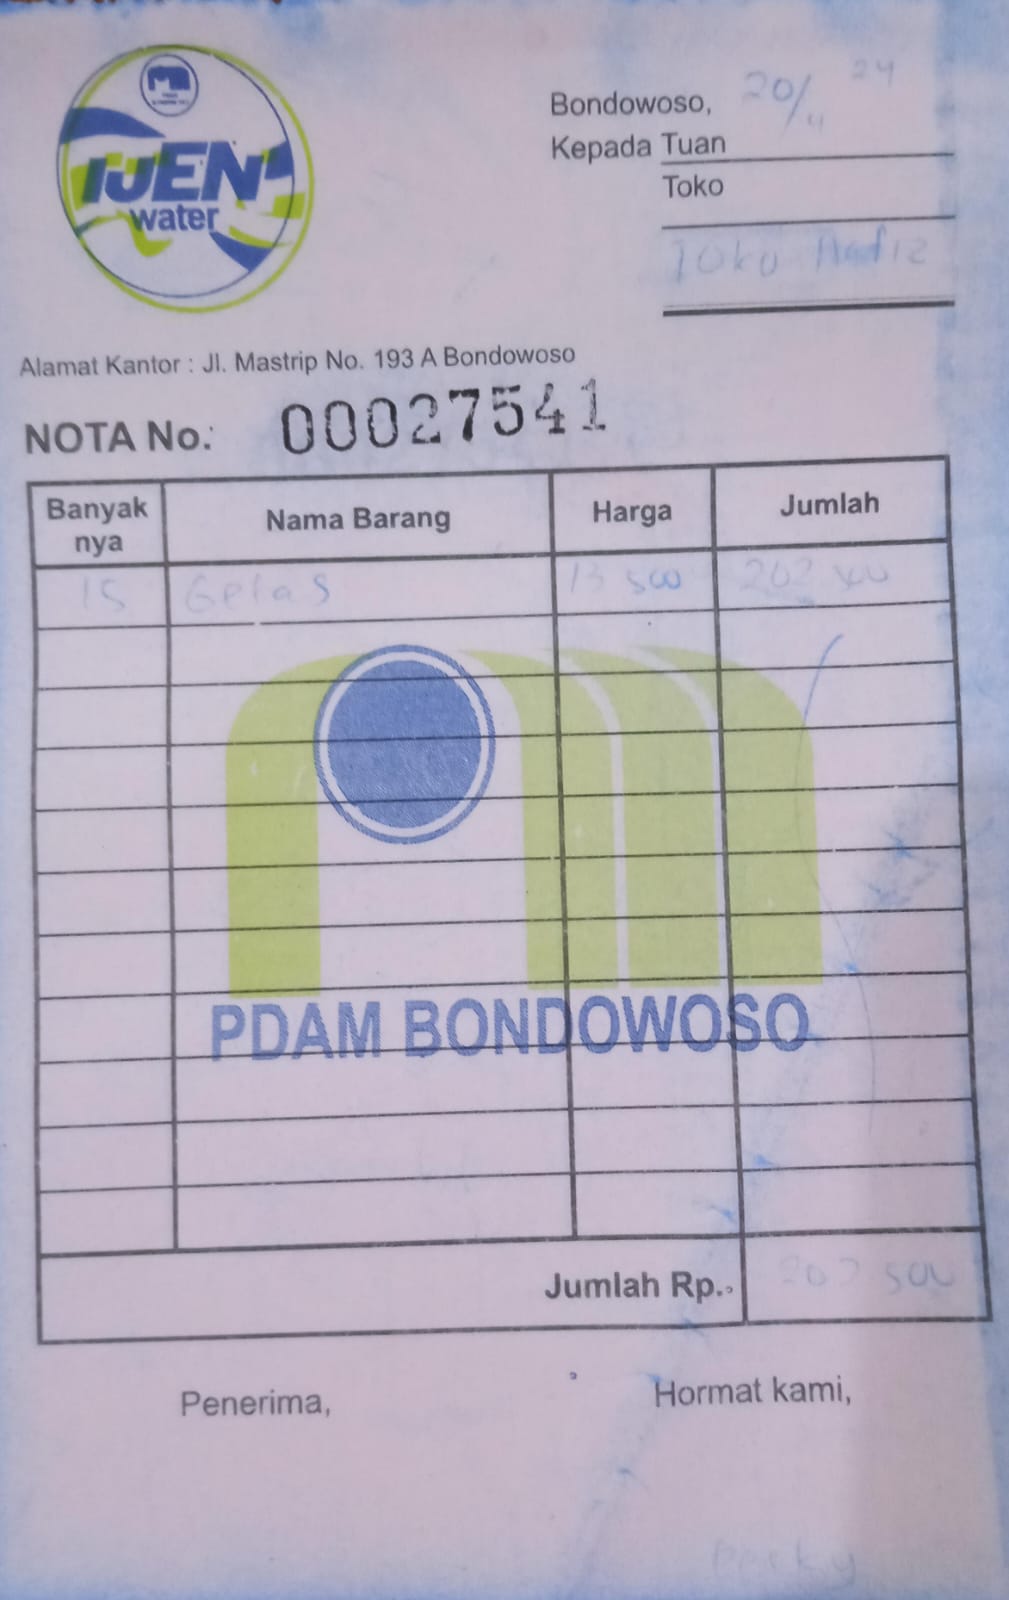 IJEN
water
Bondowoso, 20/4 24
Kepada Tuan
Toko
Toko Hafiz
Alamat Kantor : Jl. Mastrip No. 193 A Bondowoso
NOTA No.: 00027541
Banyak nya Nama Barang Harga Jumlah
15 Gelas 13 500 202 500
PDAM BONDOWOSO
Jumlah Rp. 202 500
Penerima, Hormat kami,